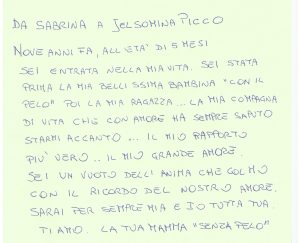 DA SABRINA A JELSOMINA PICCO
NOVE ANNI FA, ALL'ETA' DI 5 MESI
SEI ENTRATA NELLA MIA VITA. SEI STATA
PRIMA LA MIA BELLISSIMA BAMBINA "CON IL
PELO" POI LA MIA RAGAZZA... LA MIA COMPAGNA
DI VITA CHE CON AMORE HA SEMPRE SAPUTO
STARMI ACCANTO ... IL MIO RAPPORTO
PIU' VERO... IL MIO GRANDE AMORE.
SEI UN VUOTO DELL'ANIMA CHE COLMO
CON IL RICORDO DEL NOSTRO AMORE.
SARAI PER SEMPRE MIA E IO TUTTA TUA.
TI AMO. LA TUA MAMMA "SENZA PELO"